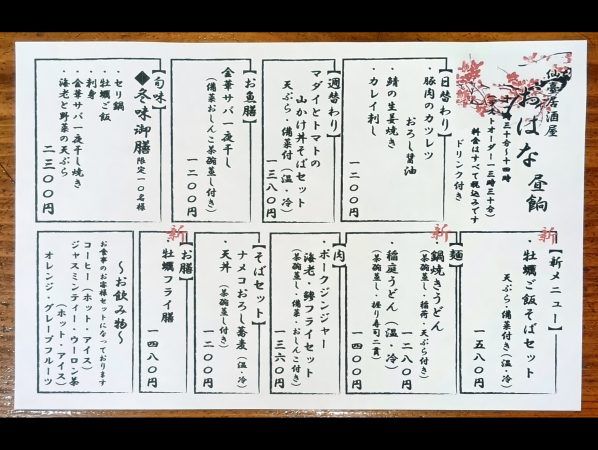 仙臺居酒屋
おはな 昼餉
十一時三十分〜十四時
ラストオーダー(十三時三十分)
料金はすべて税込みです
ドリンク付き
【日替わり】
・豚肉のカツレツ
おろし醤油
・鯖の生姜焼き
・カレイ刺し
一二〇〇円
【週替わり】
マダイとトマトの
山かけ丼そばセット
天ぷら・備菜付(温・冷)
一三八〇円
【お魚膳】
金華サバ一夜干し
(備菜おしんこ茶碗蒸し付き)
一二〇〇円
【旬味】
冬味御膳 限定一〇名様
・セリ鍋
・牡蠣ご飯
・刺身
・金華サバ一夜干し焼き
・海老と野菜の天ぷら
二三〇〇円
新
【新メニュー】
・牡蠣ご飯そばセット
天ぷら・備菜付き(温・冷)
一五八〇円
新
【麺】
鍋焼きうどん
(茶碗蒸し・稲荷・天ぷら付き)
一二八〇円
・稲庭うどん(温・冷)
(茶碗蒸し・握り寿司二貫)
一四〇〇円
【肉】
・ポークジンジャー
海老・鰺フライセット
(茶碗蒸し・備菜・おしんこ付き)
一三六〇円
【そばセット】
ナメコおろし蕎麦(温・冷)
・天丼(茶碗蒸し付き)
一二〇〇円
新
【お膳】
牡蠣フライ膳
一四八〇円
〜お飲み物〜
お食事のお客様セットになっております
コーヒー(ホット・アイス)
ジャスミンティー・ウーロン茶
(ホット・アイス)
オレンジ・グレープフルーツ